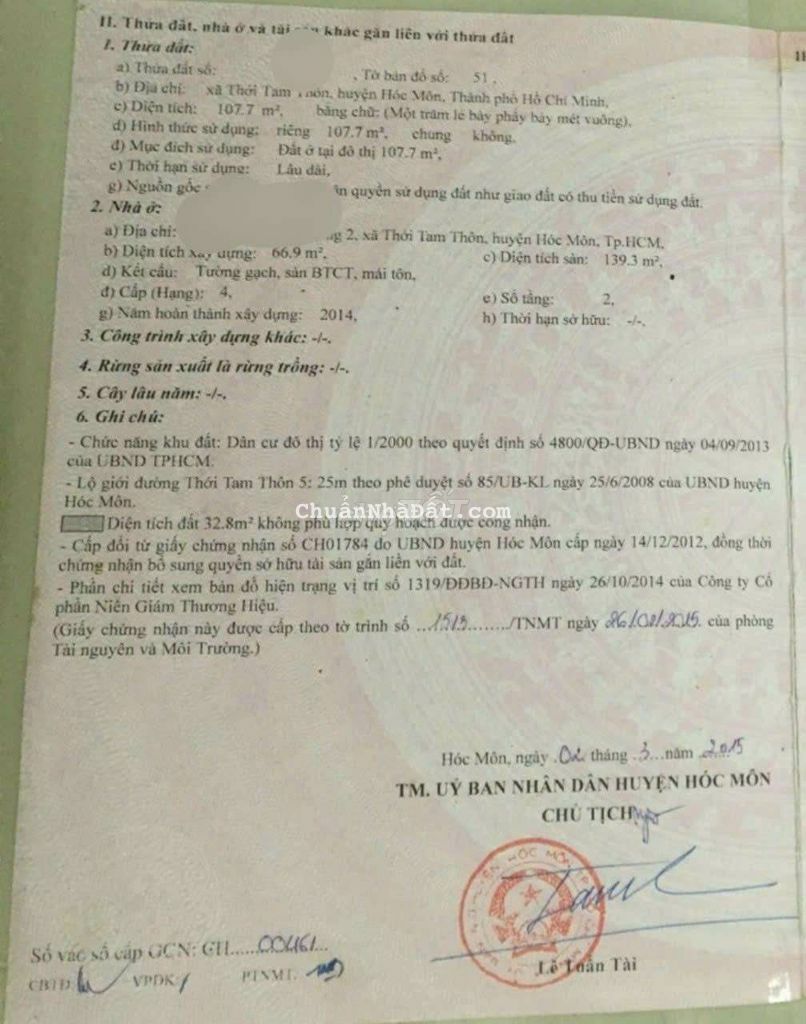 II. Thửa đất, nhà ở và tài khác gắn liền với thửa đất
1. Thửa đất:
a) Thửa đất số: , Tờ bản đồ số: 51 ,
b) Địa chỉ: xã Thới Tam Thôn, huyện Hóc Môn, Thành phố Hồ Chí Minh,
c) Diện tích: 107.7 m², bằng chữ: (Một trăm lẻ bảy phẩy bảy mét vuông),
d) Hình thức sử dụng: riêng 107.7 m², chung không,
đ) Mục đích sử dụng: Đất ở tại đô thị 107.7 m²,
e) Thời hạn sử dụng: Lâu dài,
g) Nguồn gốc quyền sử dụng đất như giao đất có thu tiền sử dụng đất.
2. Nhà ở:
a) Địa chỉ: 2, xã Thới Tam Thôn, huyện Hóc Môn, Tp.HCM,
b) Diện tích xây dựng: 66.9 m², c) Diện tích sàn: 139.3 m²,
d) Kết cấu: Tường gạch, sàn BTCT, mái tôn,
đ) Cấp (Hạng): 4, e) Số tầng: 2,
g) Năm hoàn thành xây dựng: 2014, h) Thời hạn sở hữu: -/-,
3. Công trình xây dựng khác: -/-.
4. Rừng sản xuất là rừng trồng: -/-.
5. Cây lâu năm: -/-.
6. Ghi chú:
- Chức năng khu đất: Dân cư đô thị tỷ lệ 1/2000 theo quyết định số 4800/QĐ-UBND ngày 04/09/2013
của UBND TPHCM.
- Lộ giới đường Thới Tam Thôn 5: 25m theo phê duyệt số 85/UB-KL ngày 25/6/2008 của UBND huyện
Hóc Môn.
ChuẩnNhàĐất.com
Diện tích đất 32.8m² không phù hợp quy hoạch được công nhận.
- Cấp đổi từ giấy chứng nhận số CH01784 do UBND huyện Hóc Môn cấp ngày 14/12/2012, đồng thời
chứng nhận bổ sung quyền sở hữu tài sản gắn liền với đất.
- Phần chi tiết xem bản đồ hiện trạng vị trí số 1319/ĐĐBĐ-NGTH ngày 26/10/2014 của Công ty Cổ
phần Niên Giám Thương Hiệu.
(Giấy chứng nhận này được cấp theo tờ trình số ...1513......../TNMT ngày 26/02/2015. của phòng
Tài nguyên và Môi Trường.)
Hóc Môn, ngày .02 tháng .3...năm ..2015
TM. UỶ BAN NHÂN DÂN HUYỆN HÓC MÔN
CHỦ TỊCH
Lê Tuấn Tài
Số vào sổ cấp GCN: CH....00461....
CBTĐ: VPĐK PTNMT